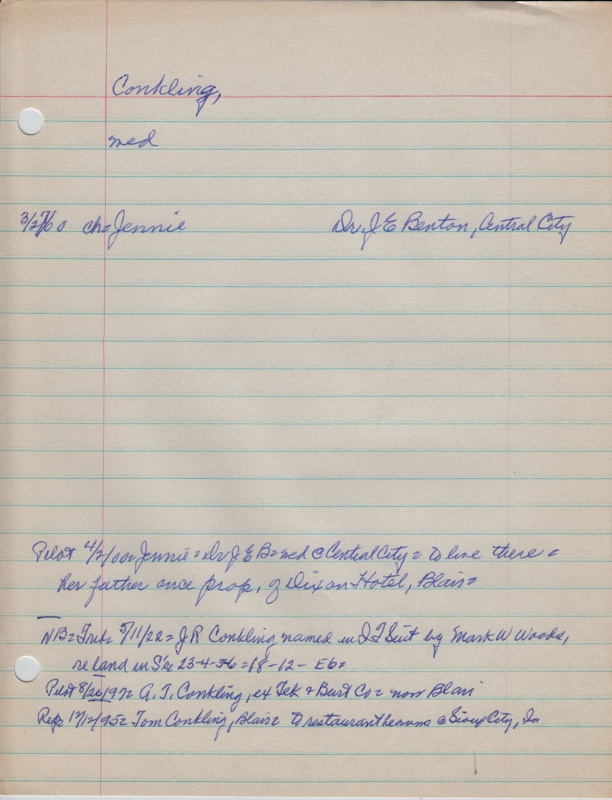 Conkling,
med
3/27/00 ch= Jennie Dr J E Benton, Central City
Pilot 4/2/00= Jennie = Dr J E B= med @ Central City = to live there =
her father once prop. of Dixon Hotel, Blair=
NB= Trib= 5/11/22= J R Conkling named in Suit by Mark W Woods,
re land in 23-4- =18-12- E6=
Pilot 8/20/ = A. T. Conkling, ex Tek + Burt Co = now Blair
Rep= = Tom Conkling, Blair= to restaurant @ Sioux City, Ia